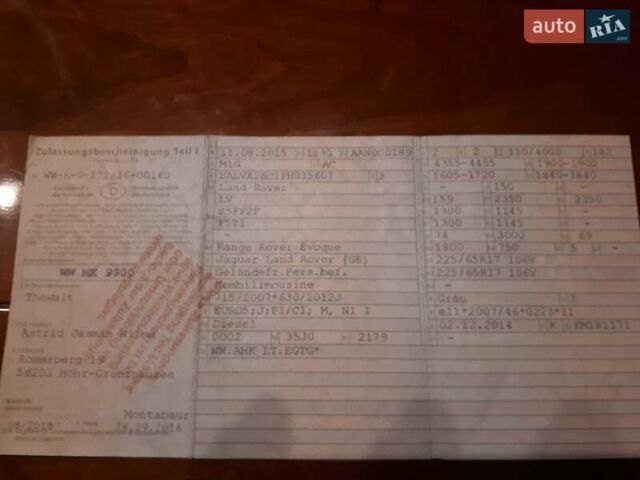 auto RIA .com
Zulassungsbescheinigung Teil I
WW-K-0-272/16-00160
D
WW MK 9900
Thewalt
Astrid Jasmin
Römerberg 19
56203 Höhr-Grenzhausen
Montabaur
08/2018
28.09.2016
11.08.2015 1590 AAN000189
M1G AC
3
Land Rover
LV
-
Range Rover Evoque
Jaguar Land Rover (GB)
Geländefz.Pers.bef.
Kombilimousine
715/2007*630/2012J
EURO5;J;PI/CI; M, N1 I
Diesel
0002 35J0 2179
WW.AHK LT.EGTG*
2 2 110/4000 182
4355-4455 1900-1900
1605-1720 1840-1840
- 150 -
159 2350 2350
1300 1145 -
1300 1145 -
74 3000 69
1800 750 5 -
225/65R17 106V
225/65R17 106V
-
Grau 7
e11*2007/46*0223*11
02.12.2014 K EM191171
-